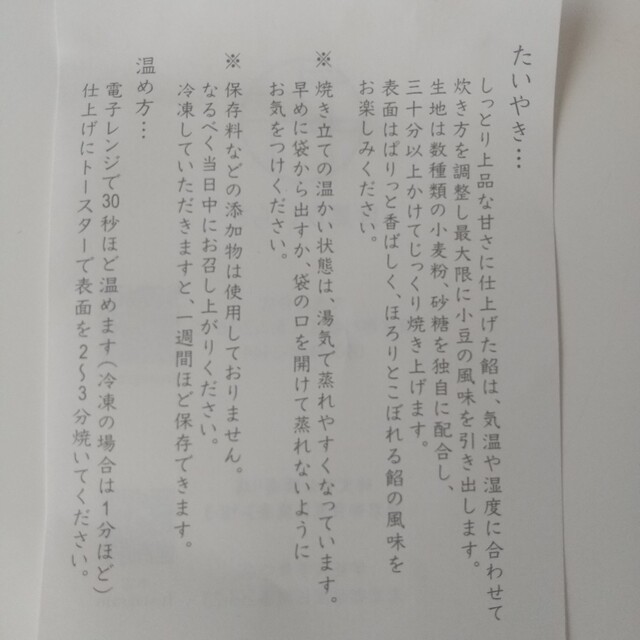 たいやき…
しっとり上品な甘さに仕上げた餡は、気温や湿度に合わせて
炊き方を調整し最大限に小豆の風味を引き出します。
生地は数種類の小麦粉、砂糖を独自に配合し、
三十分以上かけてじっくり焼き上げます。
表面はぱりっと香ばしく、ほろりとこぼれる餡の風味を
お楽しみください。
※ 焼き立ての温かい状態は、湯気で蒸れやすくなっています。
早めに袋から出すか、袋の口を開けて蒸れないように
お気をつけください。
※ 保存料などの添加物は使用しておりません。
なるべく当日中にお召し上がりください。
冷凍していただきますと、一週間ほど保存できます。
温め方…
電子レンジで30秒ほど温めます(冷凍の場合は1分ほど)
仕上げにトースターで表面を2〜3分焼いてください。